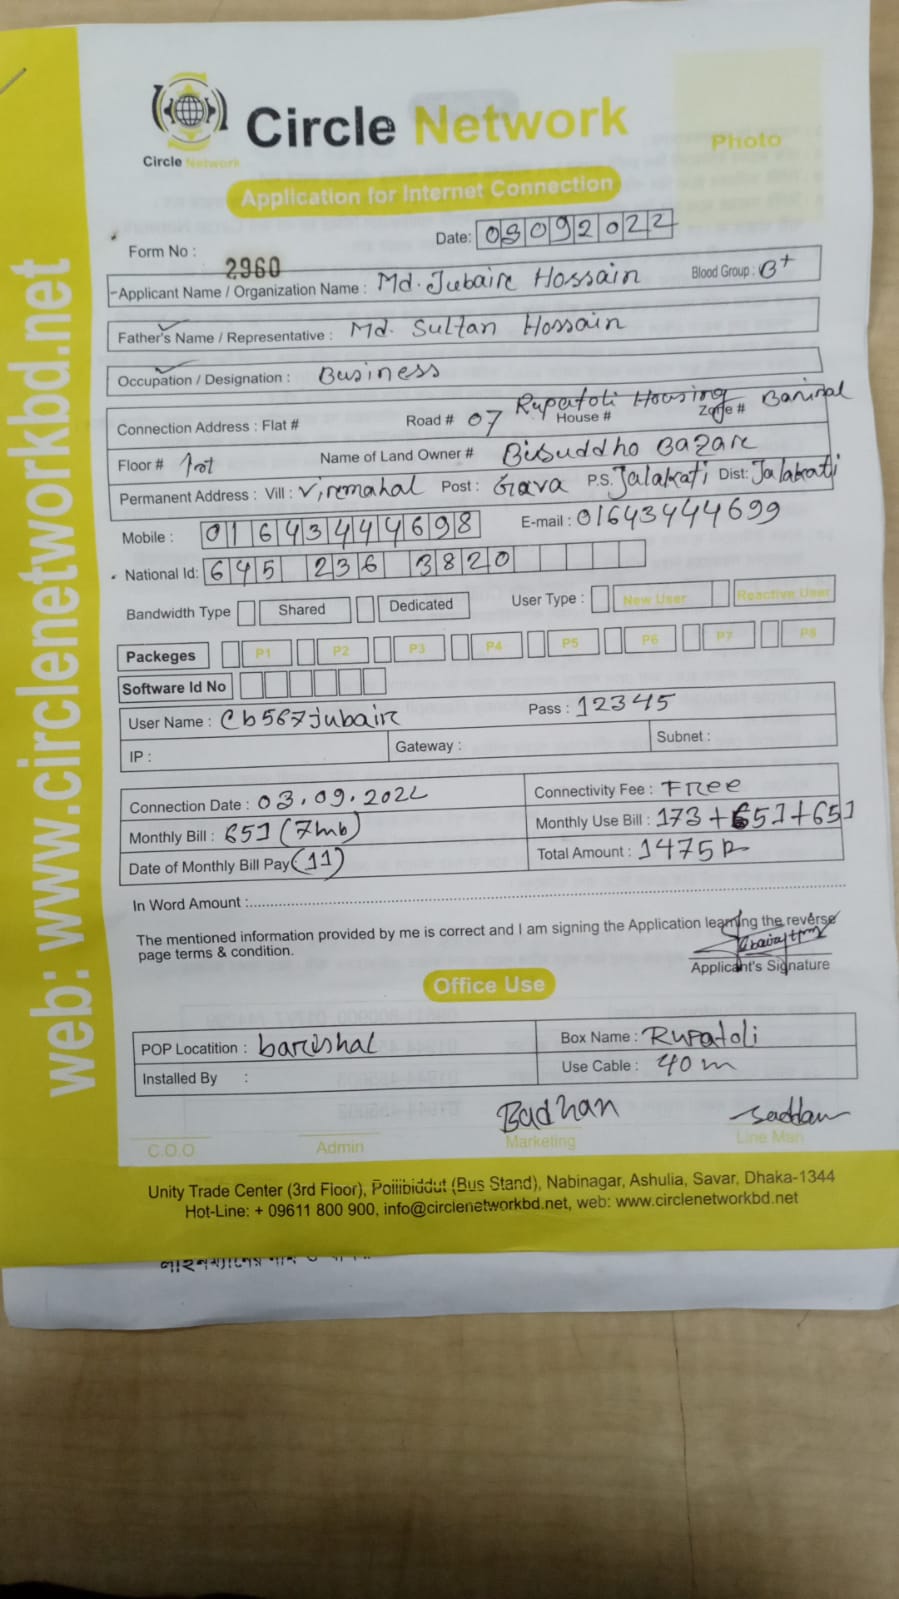 web: www.circlenetworkbd.net
Circle Network
Circle Network
Photo
Application for Internet Connection
Date: 03092022
Form No :
2960
Applicant Name / Organization Name : Md. Jubair Hossain Blood Group : B+
Father's Name / Representative : Md. Sultan Hossain
Occupation / Designation : Business
Connection Address : Flat # Road # 07 House # Rupatoli Housing Zone # Barisal
Floor # 1st Name of Land Owner # Bisuddho Bazar
Permanent Address : Vill : Viremahal Post : Gava P.S. Jalakati Dist: Jalakati
Mobile : 01643444698 E-mail : 01643444699
National Id: 645 236 3820
Bandwidth Type Shared Dedicated User Type : New User Reactive User
Packeges P1 P2 P3 P4 P5 P6 P7 P8
Software Id No
User Name : Cb567jubair Pass : 12345
IP : Gateway : Subnet :
Connection Date : 03.09.2022 Connectivity Fee : Free
Monthly Bill : 651 (7mb) Monthly Use Bill : 173+651+651
Date of Monthly Bill Pay (11) Total Amount : 1475
In Word Amount :
The mentioned information provided by me is correct and I am signing the Application learning the reverse
page terms & condition.
Applicant's Signature
Office Use
POP Locatition : barishal Box Name : Rupatoli
Installed By : Use Cable : 40m
Badhan saddam
C.O.O Admin Marketing Line Man
Unity Trade Center (3rd Floor), Pollibiddut (Bus Stand), Nabinagar, Ashulia, Savar, Dhaka-1344
Hot-Line: + 09611 800 900, info@circlenetworkbd.net, web: www.circlenetworkbd.net